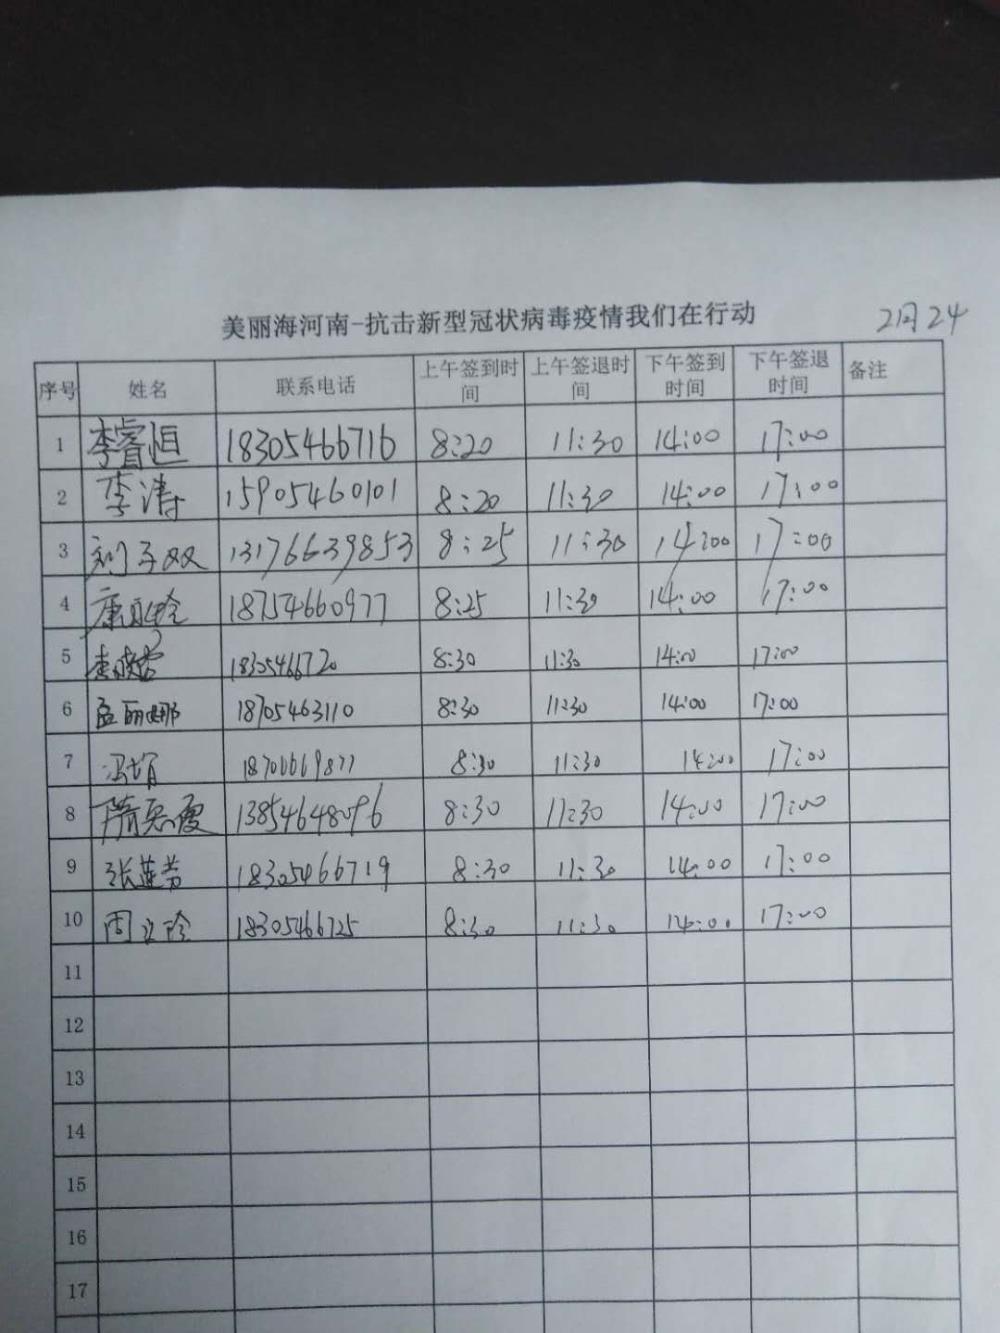 美丽海河南-抗击新型冠状病毒疫情我们在行动 2月24
序号 姓名 联系电话 上午签到时间 上午签退时间 下午签到时间 下午签退时间 备注
1 李睿恒 18305466716 8:20 11:30 14:00 17:00
2 李涛 15905460101 8:20 11:30 14:00 17:00
3 刘子双 13176639853 8:25 11:30 14:00 17:00
4 18754660977 8:25 11:30 14:00 17:00
5 8:30 11:30 14:00 17:00
6 孟丽娜 18705463110 8:30 11:30 14:00 17:00
7 冯娟 8:30 11:30 14:00 17:00
8 13854648096 8:30 11:30 14:00 17:00
9 张莲芳 18305466719 8:30 11:30 14:00 17:00
10 周立玲 18305466725 8:30 11:30 14:00 17:00
11
12
13
14
15
16
17